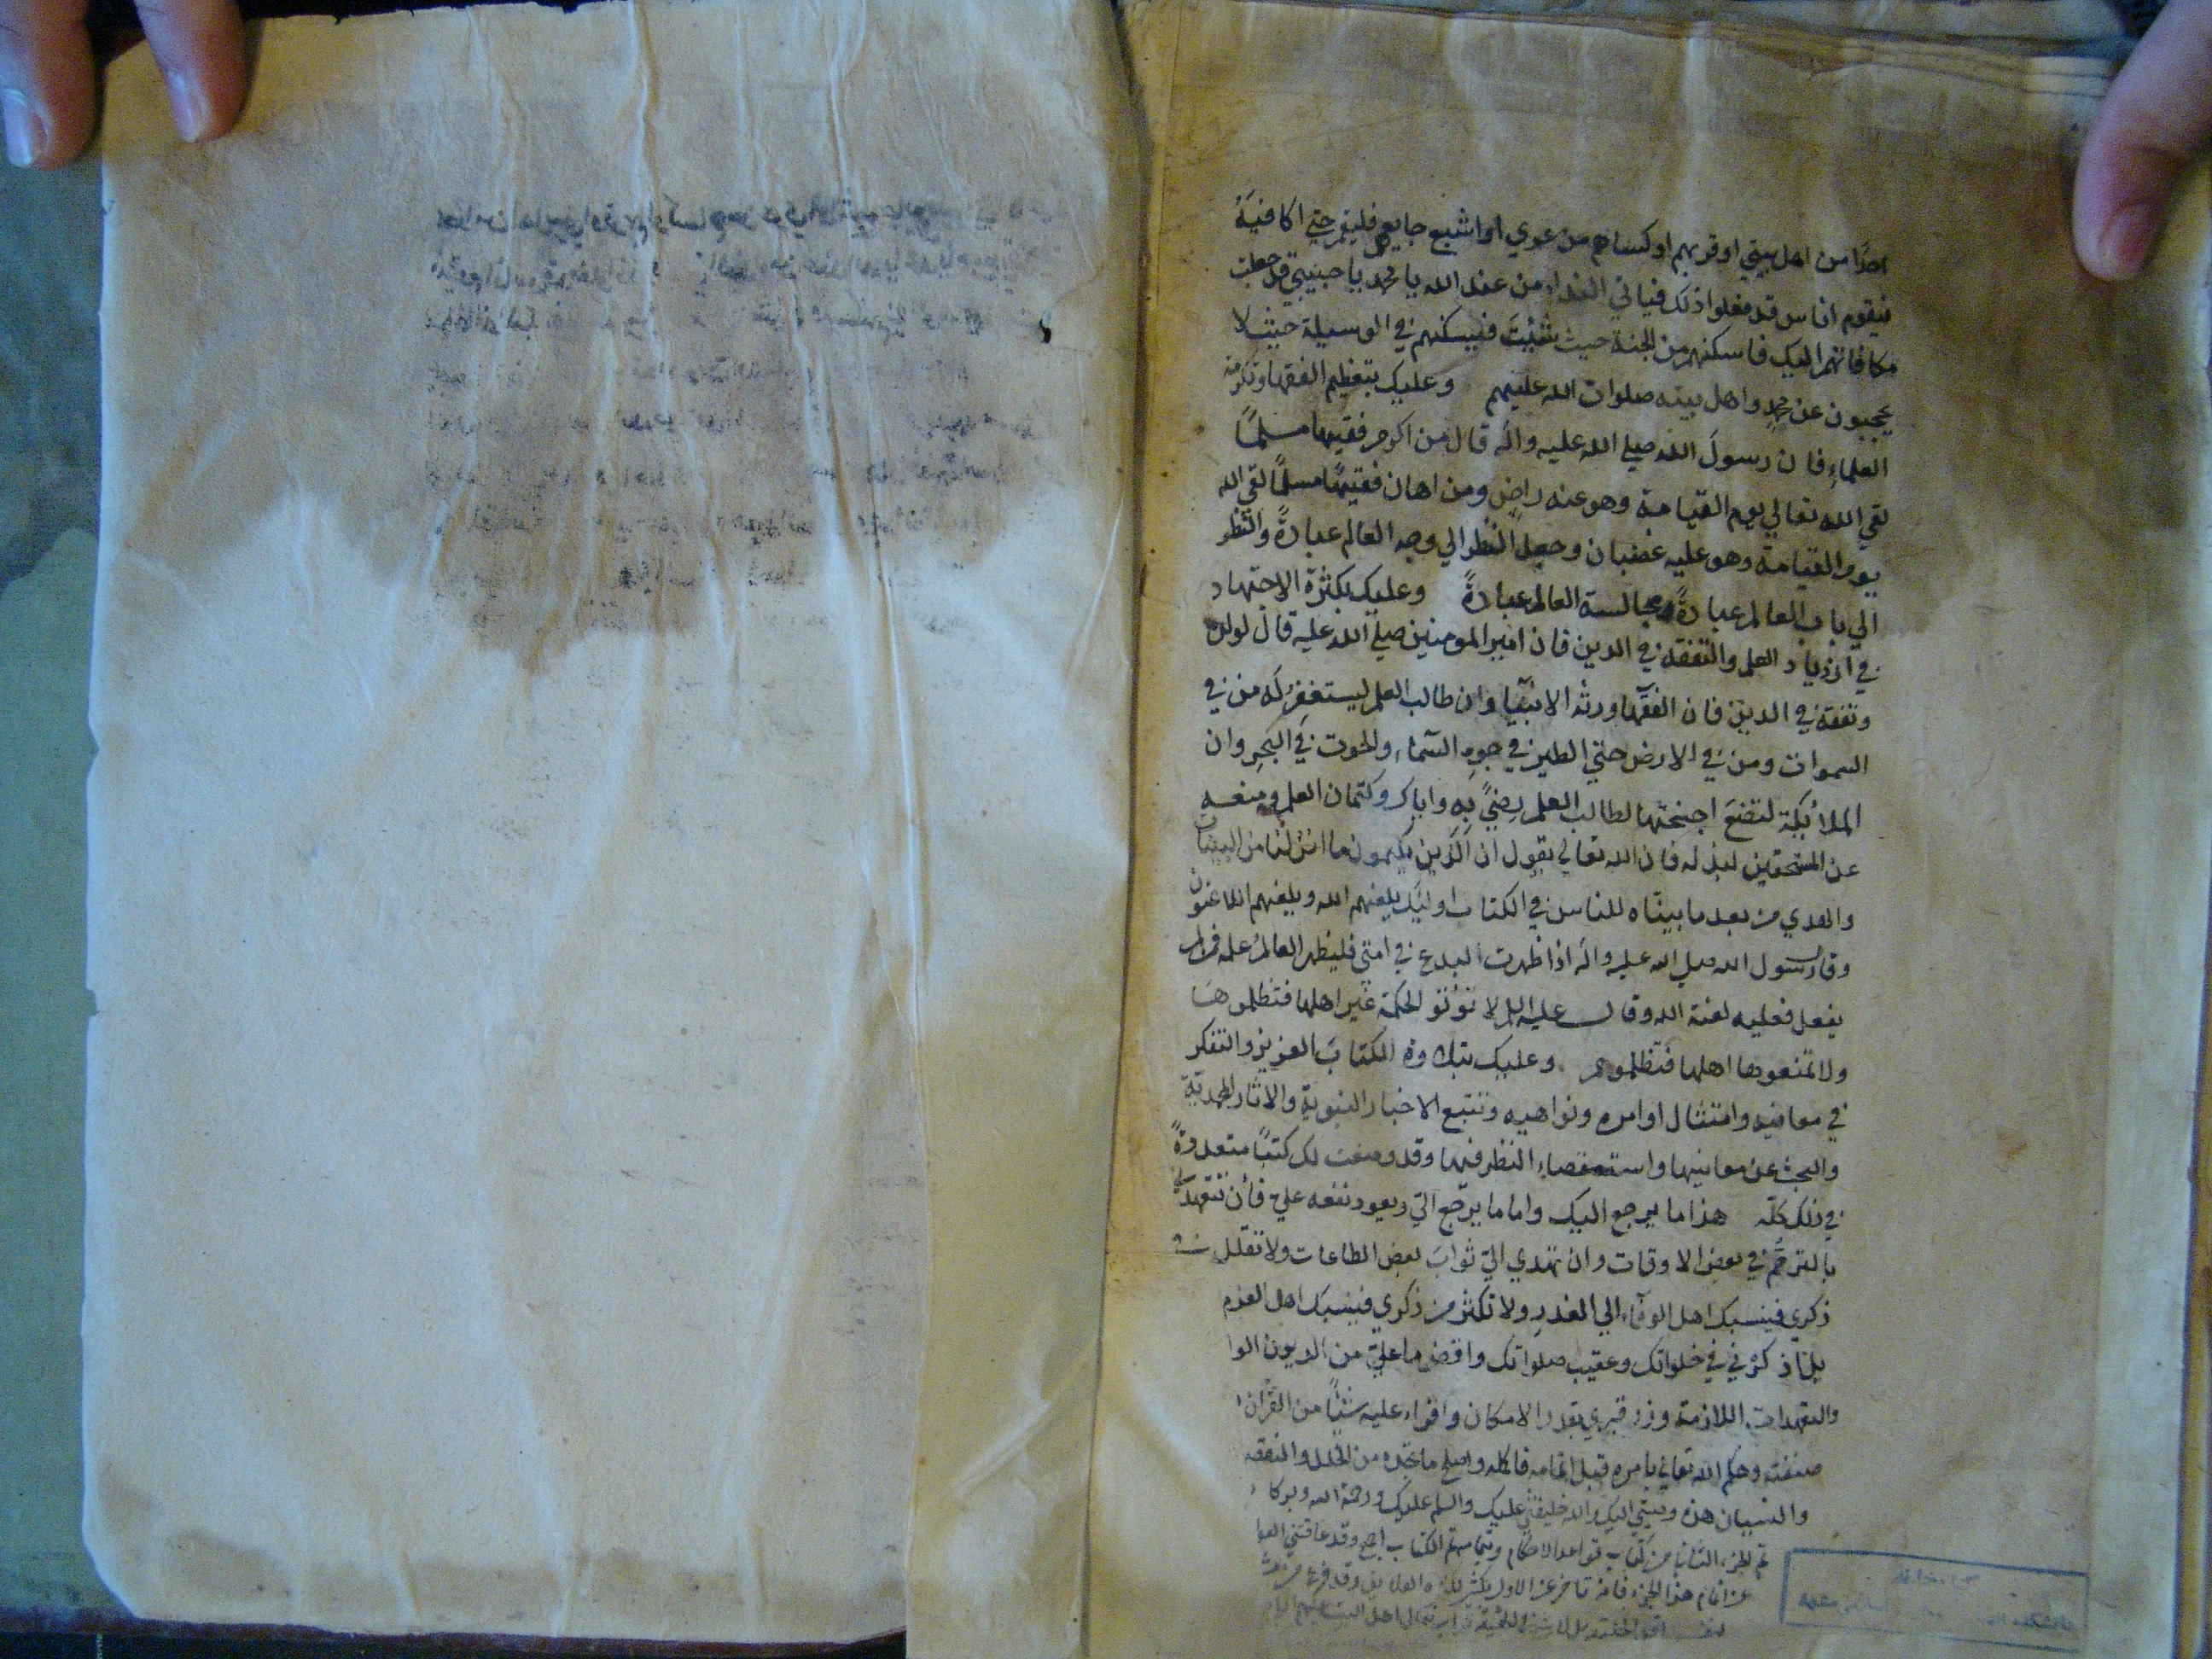 احدا من اهل بيتي او قربهم او كساهم من عري او اشبع جايعهم فليقم حتى اكافيه
فيقوم اناس قد فعلوا ذلك فياتي النداء من عند الله يا محمد يا حبيبي قد جعلت
مكافاتهم اليك فاسكنهم من الجنة حيث شئت فيسكنهم في الوسيلة حيث لا
يحجبون عن محمد واهل بيته صلوات الله عليهم وعليك بتعظيم الفقها وتكرمة
العلماء فان رسول الله صلى الله عليه واله قال من اكرم فقيها مسلما
لقي الله تعالى يوم القيامة وهو عنه راض ومن اهان فقيها مسلما لقي الله
يوم القيامة وهو عليه غضبان وجعل النظر الى وجه العالم عبادة والنظر
الى باب العالم عبادة ومجالسة العالم عبادة وعليك بكثرة الاجتهاد
في ازدياد العلم والتفقه في الدين فان امير المومنين صلى الله عليه قال لولده
وتفقه في الدين فان الفقها ورثة الانبيا وان طالب العلم ليستغفر له من في
السموات ومن في الارض حتى الطير في جو السماء والحوت في البحر وان
الملائكة لتضع اجنحتها لطالب العلم رضىً به واياك وكتمان العلم ومنعه
عن المستحقين لبذله فان الله تعالى يقول ان الذين يكتمون ما انزلنا من البينات
والهدي من بعد ما بيناه للناس في الكتاب اوليك يلعنهم الله ويلعنهم اللاعنون
وقال رسول الله صلى الله عليه واله اذا ظهرت البدع في امتي فليظهر العالم علمه فمن لم
يفعل فعليه لعنة الله وقال عليه السلم لا تؤتو الحكمة غير اهلها فتظلموها
ولا تمنعوها اهلها فتظلموهم وعليك بتلاوة الكتاب العزيز والتفكر
في معانيه وامتثال اوامره ونواهيه وتتبع الاخبار النبوية والاثار المحمدية
والبحث عن معانيها واستقصاء النظر فيها وقد وضعت لك كتبا متعددة
في ذلك كله هذا ما يرجع اليك واما ما يرجع الي ويعود نفعه علي فان تتعهدني
بالترحم في بعض الاوقات وان تهدي الي ثواب بعض الطاعات ولا تقلل من
ذكري فينسبك اهل الوفاء الى الغدر ولا تكثر من ذكري فينسبك اهل العزم
بل اذكرني في خلواتك وعقيب صلواتك واقض ما علي من الديون الوا
والتعهدات اللازمة وزر قبري بقدر الامكان واقراء عليه شيئا من القران
صنفته وحكم الله تعالى بامره قبل اتمامه فاكمله واصلح ما تجده من الخلل والنقص
والنسيان هذه وصيتي اليك والله خليفتي عليك والسلم عليك ورحمة الله وبركا
تم الجزء الثاني من كتاب قواعد الاحكام وبتمامه تم الكتاب اجمع وقد عاقتني العوا
عن اتمام هذا الجزء فانه تاخر عن الاول بكثير